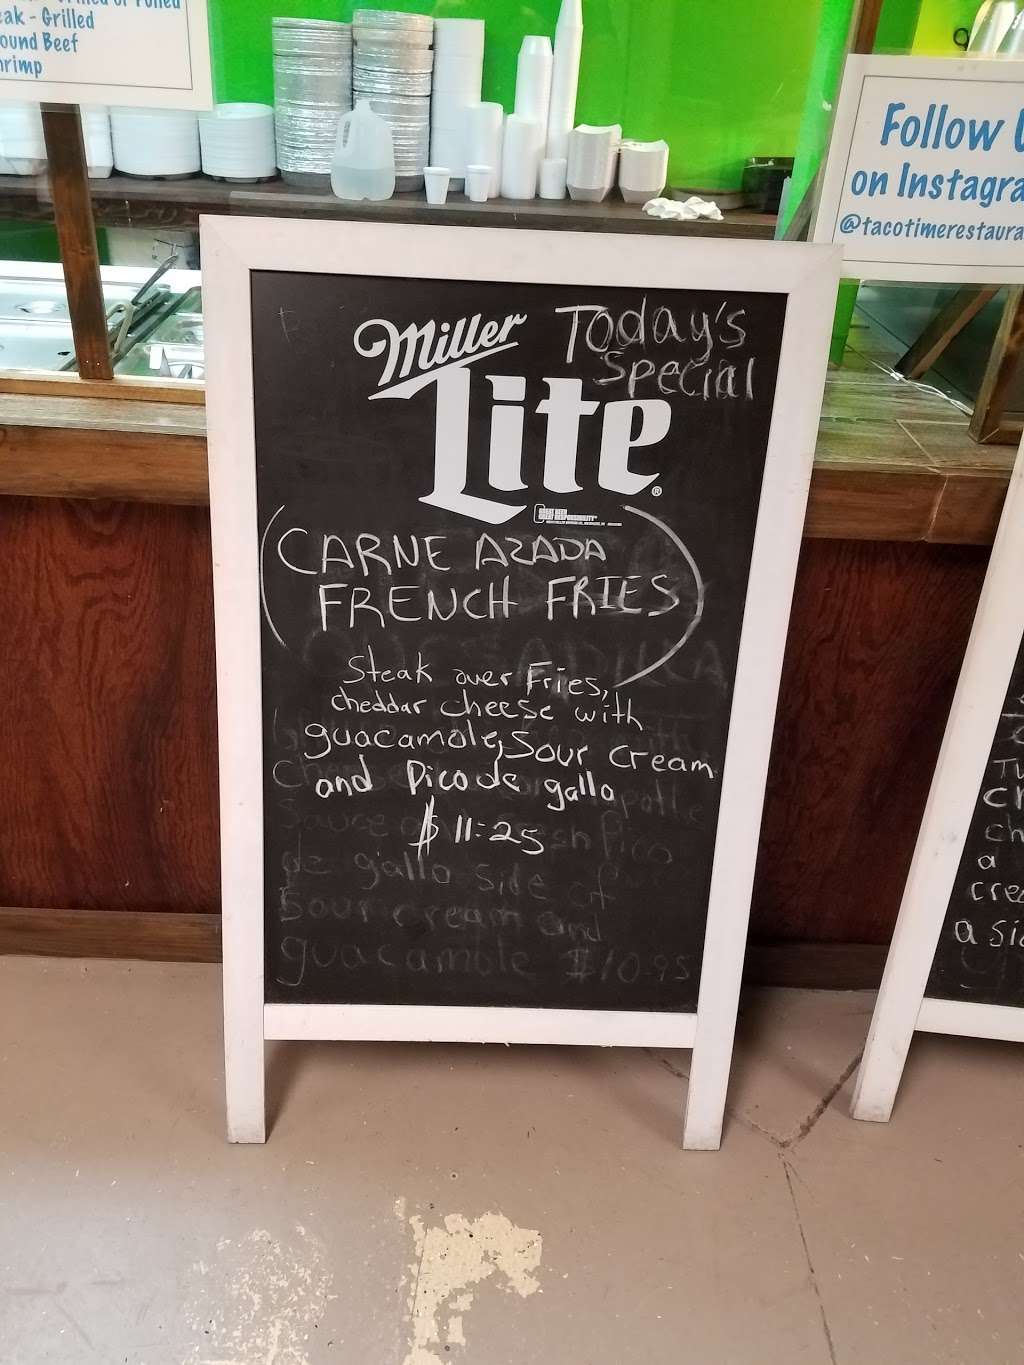 Grilled
eak - Grilled
ound Beef
hrimp
Follow
on Instagra
@tacotimerestaura
Miller
Lite
Today's
Special
CARNE AZADA
FRENCH FRIES
Steak over Fries,
cheddar cheese with
guacamole, Sour cream
and Pico de gallo
$ 11:25
sauce
Pico
de gallo side of
Sour cream and
guacamole $10.95
ch
a
crea
a sid